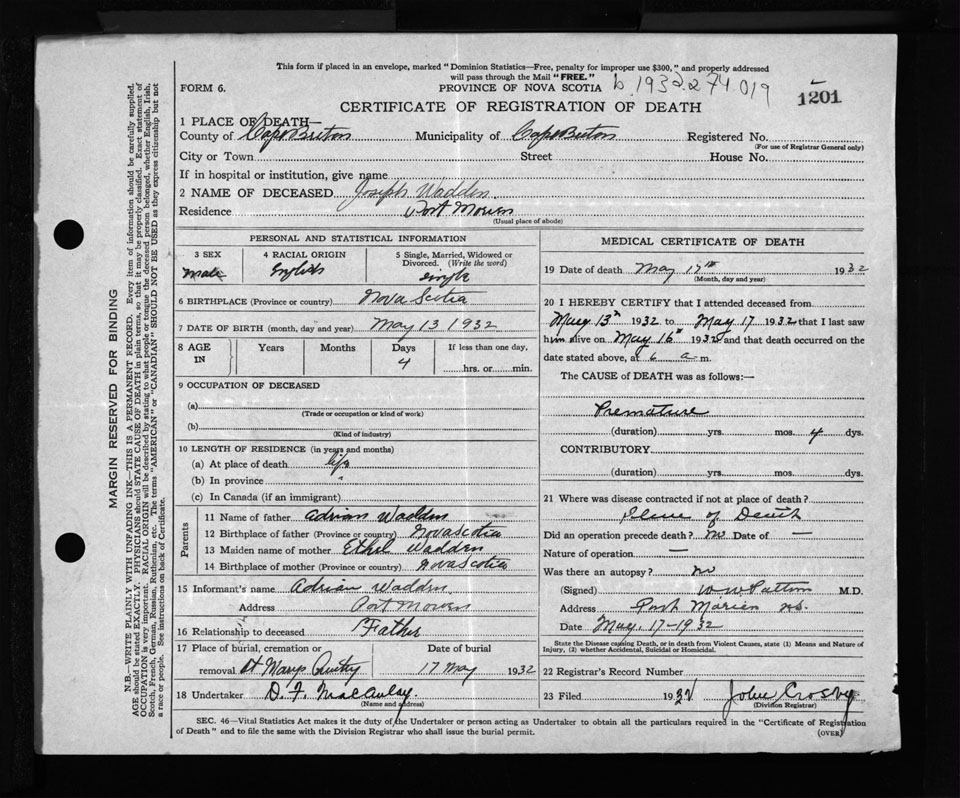 This form if placed in an envelope, marked "Dominion Statistics—Free, penalty for improper use $300," and properly addressed
will pass through the Mail "FREE."
FORM 6.
PROVINCE OF NOVA SCOTIA
b.1932.274019
CERTIFICATE OF REGISTRATION OF DEATH
1201
1 PLACE OF DEATH—
County of Cape Breton Municipality of Cape Breton Registered No.
(For use of Registrar General only)
City or Town Street House No.
If in hospital or institution, give name
2 NAME OF DECEASED Joseph Wadden
Residence Port Morien
(Usual place of abode)
PERSONAL AND STATISTICAL INFORMATION
3 SEX 4 RACIAL ORIGIN 5 Single, Married, Widowed or
Divorced. (Write the word)
Male English single
6 BIRTHPLACE (Province or country) Nova Scotia
7 DATE OF BIRTH (month, day and year) May 13 1932
8 AGE IN Years Months Days If less than one day.
4 hrs. or min.
9 OCCUPATION OF DECEASED
(a)
(Trade or occupation or kind of work)
(b)
(Kind of industry)
10 LENGTH OF RESIDENCE (in years and months)
(a) At place of death life
(b) In province "
(c) In Canada (if an immigrant)
Parents
11 Name of father Adrian Wadden
12 Birthplace of father (Province or country) Nova Scotia
13 Maiden name of mother Ethel Wadden
14 Birthplace of mother (Province or country) Nova Scotia
15 Informant's name Adrian Wadden
Address Port Morien
16 Relationship to deceased Father
17 Place of burial, cremation or Date of burial
removal St Marys 17 May 1932
18 Undertaker D. F. MacAulay
(Name and address)
MEDICAL CERTIFICATE OF DEATH
19 Date of death May 17th 1932
(Month, day and year)
20 I HEREBY CERTIFY that I attended deceased from
May 13th 1932 to May 17 1932 that I last saw
him alive on May 16th 1932 and that death occurred on the
date stated above, at 6 a m.
The CAUSE of DEATH was as follows:—
Premature
(duration) yrs. mos. 4 dys.
CONTRIBUTORY
(duration) yrs. mos. dys.
21 Where was disease contracted if not at place of death?
Place of Death
Did an operation precede death? no Date of —
Nature of operation —
Was there an autopsy? no
(Signed) W W Patton M.D.
Address Port Morien N.S.
Date May 17-1932
State the Disease causing death, or in death from Violent Causes, state (1) Means and Nature of
Injury, (2) whether Accidental, Suicidal or Homicidal.
22 Registrar's Record Number
23 Filed 1932 John Crosby
(Division Registrar)
SEC. 46—Vital Statistics Act makes it the duty of the Undertaker or person acting as Undertaker to obtain all the particulars required in the "Certificate of Registration
of Death" and to file the same with the Division Registrar who shall issue the burial permit.
(OVER)
MARGIN RESERVED FOR BINDING
N.B.—WRITE PLAINLY WITH UNFADING INK—THIS IS A PERMANENT RECORD. Every item of information should be carefully supplied.
AGE should be stated EXACTLY. PHYSICIANS should STATE CAUSE OF DEATH in plain terms, so that it may be properly classified. Exact statement of
OCCUPATION is very important. RACIAL ORIGIN will be described by stating to what people or tongue the deceased person belonged, whether English, Irish,
Scotch, French, German, Russian, Ruthenian, etc. The terms "AMERICAN" or "CANADIAN" SHOULD NOT BE USED as they express citizenship but not
a race or people. See instructions on back of Certificate.